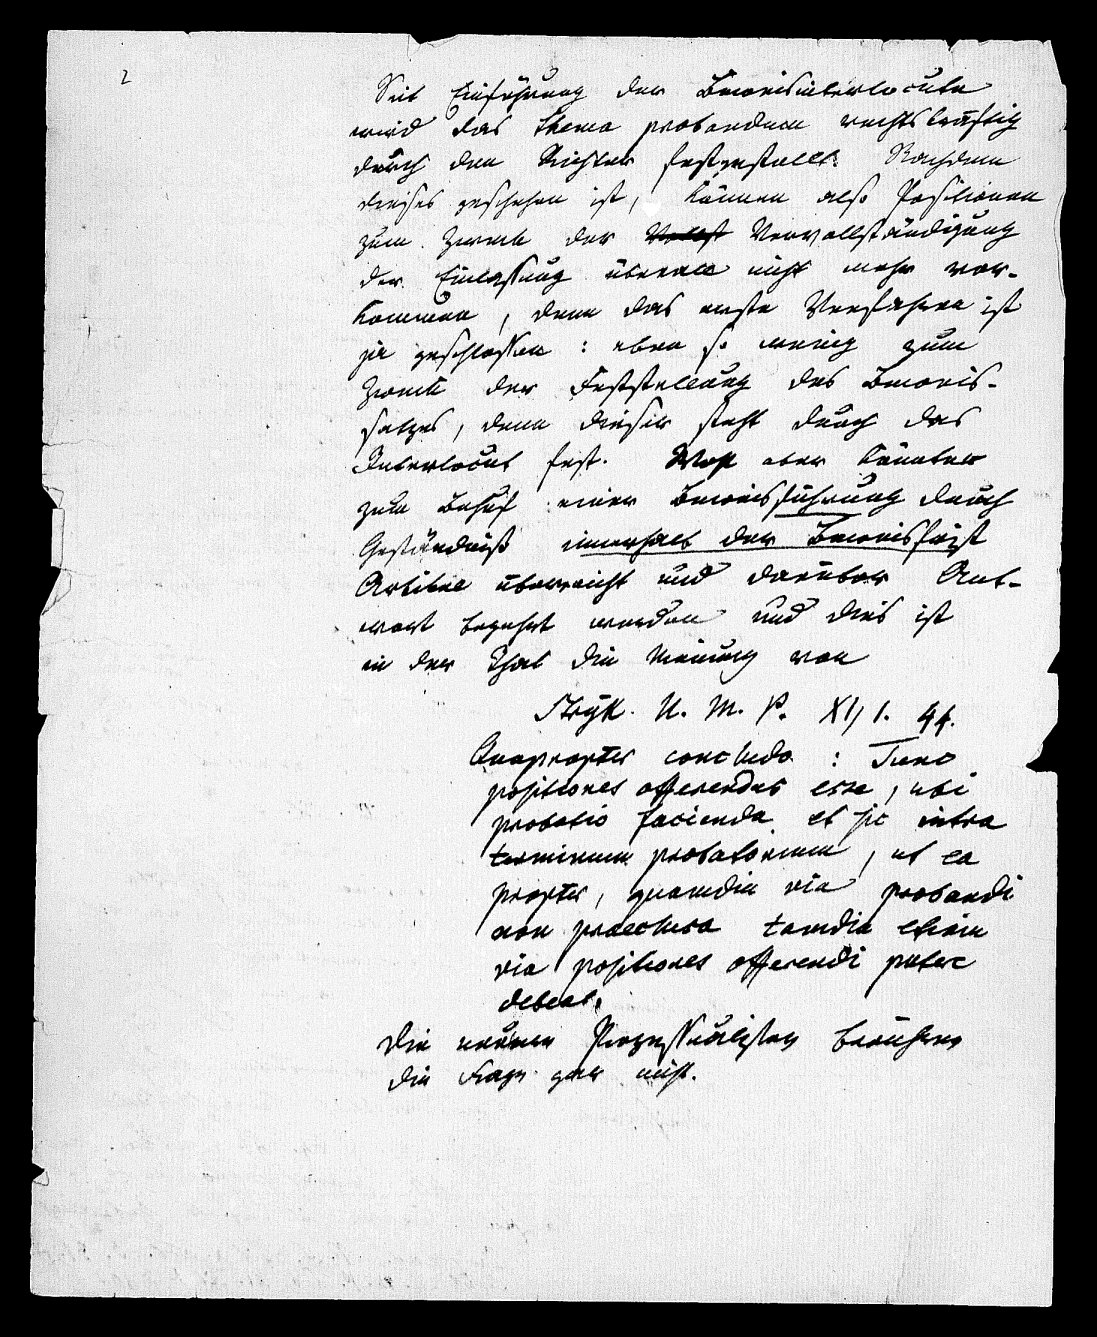 2
Seit Einführung der Beweisinterlocute
wird das thema probandum rechtskräftig
durch den Richter festgestellt. Nachdem
dieses geschehen ist, können also Positionen
zum Zweck der Vervollständigung
der Einlassung überall nicht mehr vor-
kommen, denn das erste Verfahren ist
ja geschlossen: eben so wenig zum
Zweck der Feststellung des Beweis-
satzes, denn dieser steht durch das
Interlocut fest. Wohl aber könnten
zum Behuf einer Beweisführung durch
Geständniß innerhalb der Beweisfrist
Artikel überreicht und darüber Ant-
wort begehrt werden und dies ist
in der That die Meinung von
Stryk. U. M. P. XI, 1. 44.
Quapropter concludo: Tunc
positiones offerendas esse, ubi
probatio facienda et sic intra
terminum probatorium, ut ea
propter, quamdiu via probandi
non praeclusa tamdiu etiam
via positiones offerendi patere
debeat.
Die neueren Prozessualisten berühren
die Frage gar nicht.